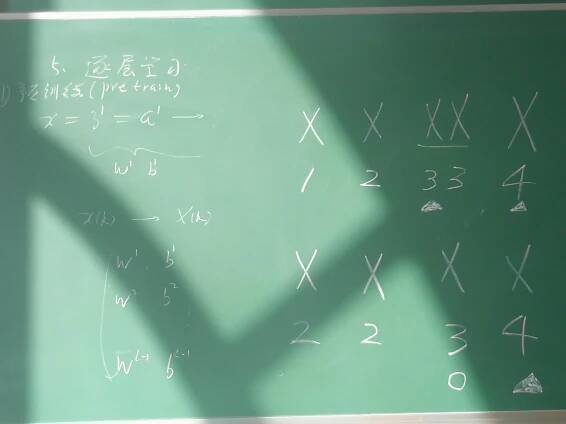 5、逐层学习
1) 预训练(pretrain)
x = z¹ = a¹ →
w¹ b¹
x(k) → x(k)
w¹ b¹
w² b²
w^(L-1) b^(L-1)
X X XX X
1 2 33 4
X X X X
2 2 3 4
0